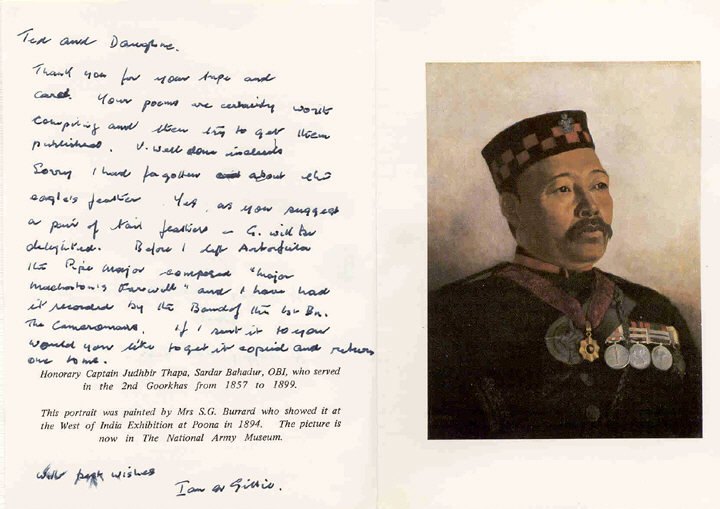 Ted and Daughne.
Thank you for your tape and
card. Your poems are certainly worth
compiling and then try to get them
published. V. well done indeed.
Sorry I had forgotten about the
eagle's feather. Yes, as you suggest
a pair of tail feathers – G. will be
delighted. Before I left
the Pipe Major composed "Major
Farewell" and I have had
it recorded by the Band of the 1st Bn.
The Cameronians. If I sent it to you
would you like to get it copied and return
one to me.
Honorary Captain Judhbir Thapa, Sardar Bahadur, OBI, who served
in the 2nd Goorkhas from 1857 to 1899.
This portrait was painted by Mrs S.G. Burrard who showed it at
the West of India Exhibition at Poona in 1894. The picture is
now in The National Army Museum.
With best wishes
Ian & Gillie.